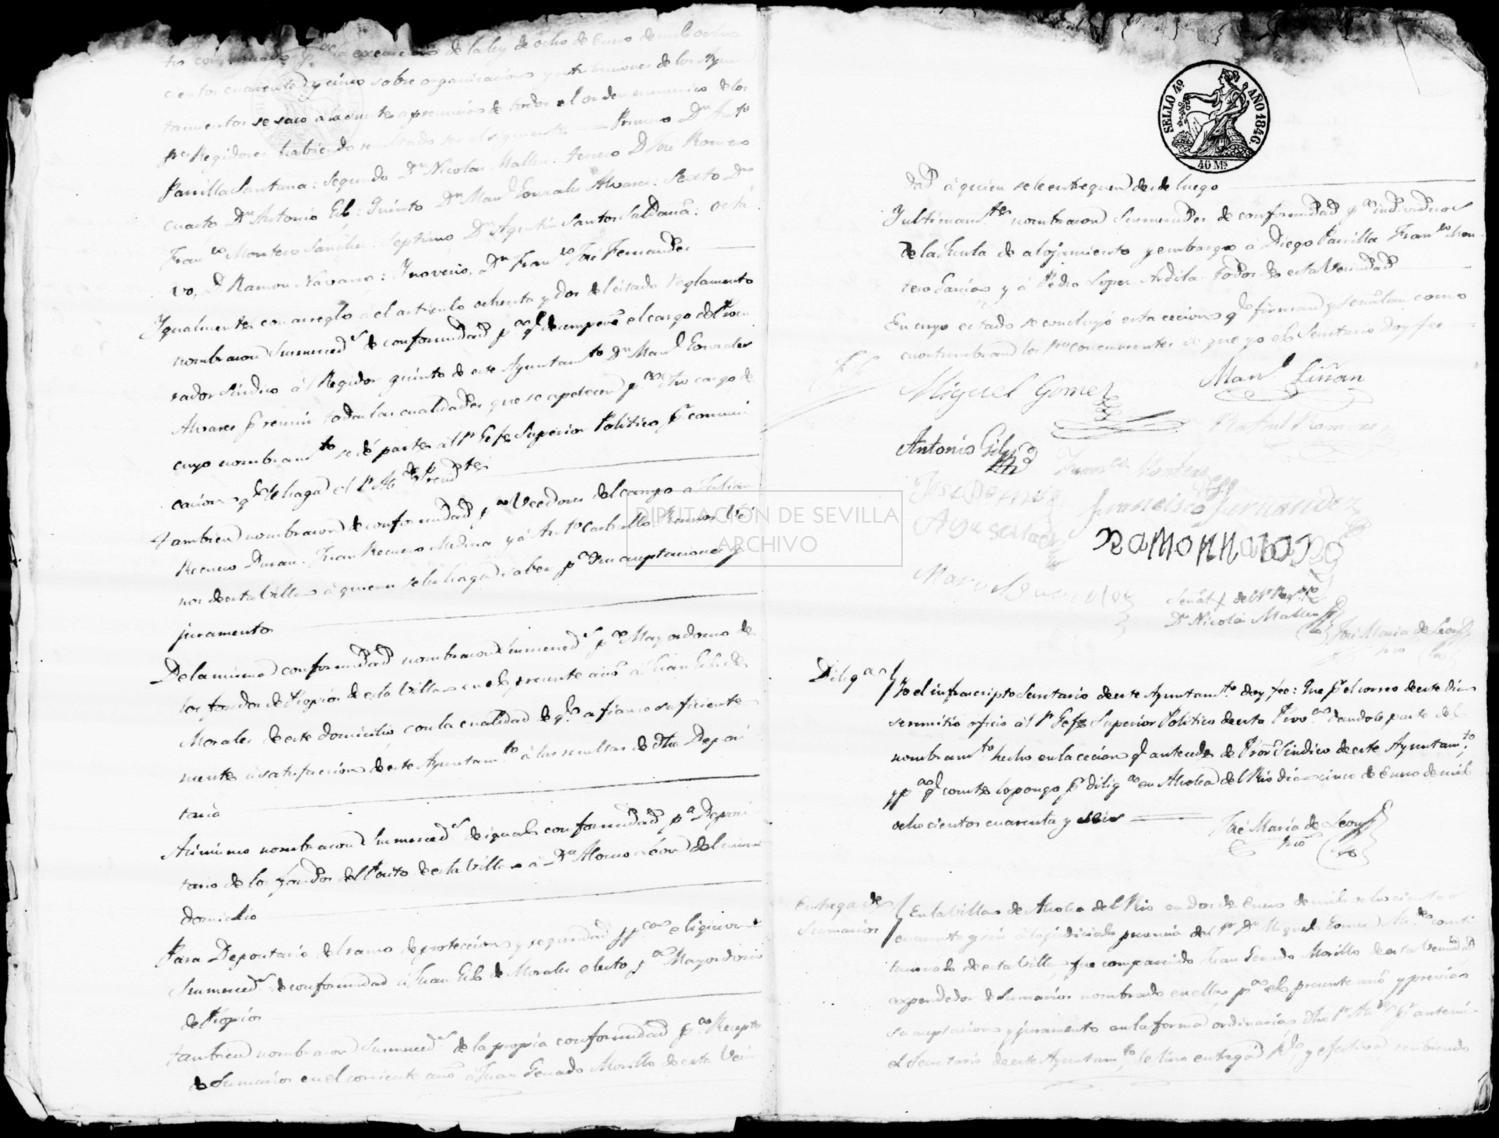 to combinado pª la execucion de la ley de ocho de Enero de mil ocho
cientos cuarenta y cinco sobre organizacion y atribuciones de los Ayun
tamientos se saco a la suerte a presencia de todos el orden numerico de los
Sres Regidores habiendo resultado ser el siguiente = Primero Dn Antº
Parrilla Santana: Segundo Dn Nicolas Mallen: tercero D José Romero
cuarto Dn Antonio Gil: Quinto Dn Manl Gonzales Alvares: Sexto Dn
Franco Montero Sanches: Septimo Dn Agustin Santos Saldaña: octa
vo, D Ramon Navarro: Y noveno, a Dn Franco José Fernandes
Ygualmente con arreglo a el articulo ochenta y dos del citado Reglamento
nombraron Sumerceds de conformidad pª qe desempeñe el cargo de Procu
rador Sindico á el Regidor quinto de este Ayuntamto Dn Manl Gonzales
Alvares pr reunir todas las cualidades que se apetecen pª dho cargo de
cuyo nombramto se dé parte al Sr Gefe Superior Politico pr comuni
cacion qe le haga el Sr Alcde Presidte
Tambien nombraron de conformidad pª Veedores del campo a Julian
Recuero Duran, Juan Recuero Medina y a Antº Carballo Ramos Veci
nos de esta Villa a quienes se les haga saber pª su aceptacion y
juramento
De la misma conformidad nombraron Sumerceds pª Mayordomo de
los fondos de Propios de esta Villa en el presente año á Juan Gil de
Morales de este domicilio con la cualidad de qe afiance suficiente
mente á satisfaccion de este Ayuntamto á las resultas de dha Deposi
taria
Asimismo nombraron Sumerceds de igual conformidad pª Deposi
tario de los fondos del Posito de esta Villa a Dn Alonso del mismo
domicilio
Para Depositario del ramo de proteccion y seguridad ppca eligieron
Sumerceds de conformidad á Juan Gil de Morales electo pª Mayordomo
de Propios
tambien nombraron Sumerceds de la propia conformidad pª Recepto
de Sumarios en el corriente año á Juan Genado Morillo de esta Vecin
SELLO 4º AÑO 1846.
40 Ms
dad á quien se le entreguen desde luego
Y ultimamte nombraron Sumercedes de conformidad pr individuos
de la Junta de alojamiento y embargo á Diego Parrilla Franco Mon
tero Garcia y á Pedro Lopez Ardila todos de esta Vecindad
En cuyo estado se concluyó esta cecion qe firman y señalan como
acostumbran los Sres concurrentes de que yo el Secretario doy fee
Miguel Gomez
Manl Liñan
Antonio Gil
Rafael Ramires
Franco Montero
Jose Romero
Francisco Fernandez
Agn Santos
Ramon Nabaro
Señal + del Sr Regor
Dn Nicolás Mallen
José Maria de Leon
Srio
Diliga
Yo el infrascripto Secretario de este Ayuntamto doy fee: Que pr el correo de este dia
se remitio oficio á el Sr Gefe Superior Politico de esta Prova dandole parte del
nombramto hecho en la cecion qe antecede de Pror Sindico de este Ayuntamto,
y pª qe conste lo pongo pr diliga en Alcolea del Rio dia cinco de Enero de mil
ochocientos cuarenta y seis
José Maria de Leon
Srio
Entrega de
Sumarios
En la Villa de Alcolea del Rio en dos de Enero de mil ochocientos
cuarenta y seis á la judicial presencia del Sr Dn Miguel Gomez Alcde consti
tucional de esta Villa fue comparecido Juan Genado Morillo de esta Vecindd
expendedor de Sumarios nombrado en ella pª el presente año y previa
su aceptacion y juramento en la forma ordinaria dho Sr Alcde pr ante mi
el Secretario de este Ayuntamto le hizo entrega Rl y efectiva
DIPUTACIÓN DE SEVILLA
ARCHIVO